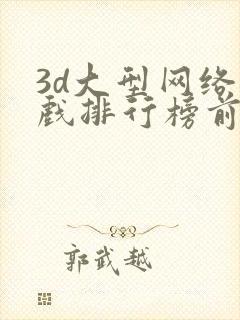 3d大型网络
戏排行榜前
郭武越